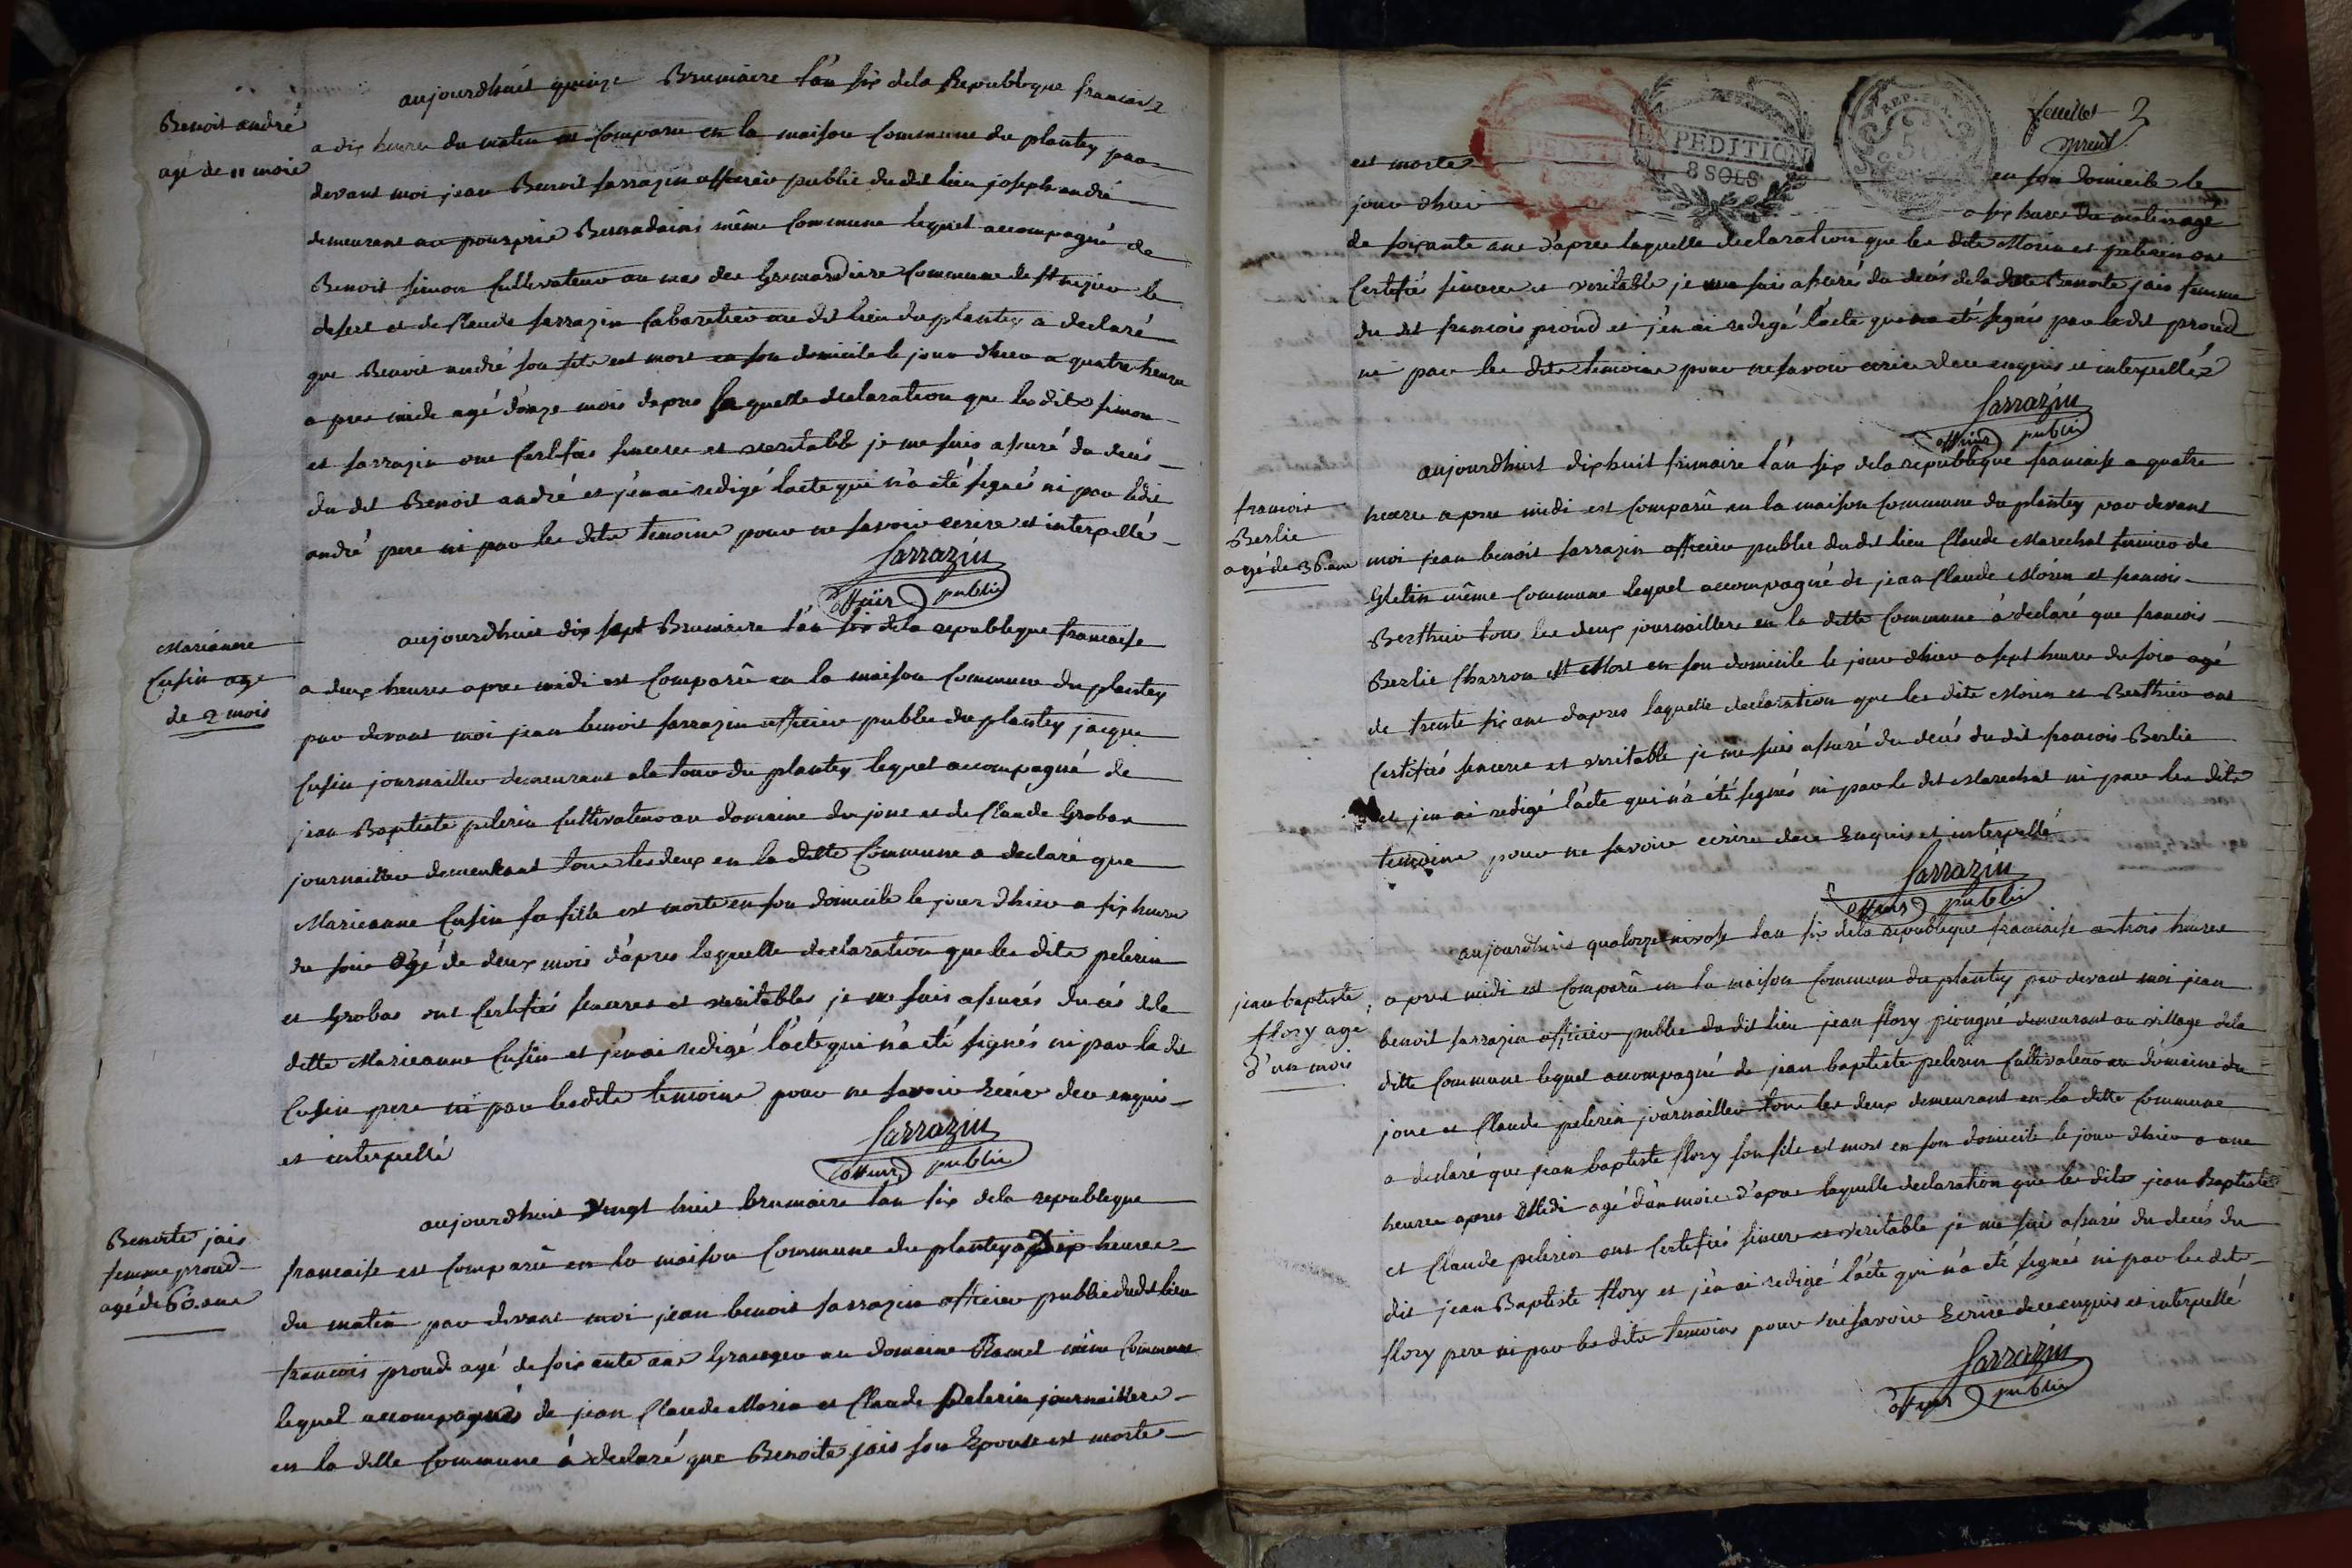 Benoit andré
agé de 11 mois
aujourdhuit quinze Brumaire l'an six dela Republeque francaise
a dix heures du matin est Comparu en la maison Commune du plantey par
devant moi jean Benoit sarrazin officier public dudit lieu joseph andré
demeurant au Bernadains même Commune lequel accompagné de
Benoit simon Cultivateur au mas des Commune de st nizier le
desert et de Claude sarrazin Cabaretier au dit lieu du plantey a declaré
que Benoit andré son fils est mort en son domicile le jour dhier a quatre heures
apres midi agé d'onze mois dapres laquelle declaration que les dits simon
et sarrazin ont Certifiés sincere et veritable je me suis assuré du decés
du dit Benoit andré et j'en ai redigé lacte qui n'a eté signé ni par ledit
andré pere ni par les dits temoins pour ne savoir ecrire et interpellé
sarrazin
officier public
Marianne
Cusin age
de 2 mois
aujourdhuit dix sept Brumaire l'an six dela republeque francaise
a deux heures apres midi est Comparû en la maison Commune du plantey
par devant moi jean benoit sarrazin officier public du plantey jacque
Cusin journaillier demeurant a la tour du plantey lequel accompagné de
jean Baptiste pelerin Cultivateur au domaine du jonc et de Claude Grobas
journaillier demeurant tous les deux en la ditte Commune a declaré que
Marieanne Cusin sa fille est morte en son domicile le jour dhier a six heures
du soir agé de deux mois d'apres laquelle declaration que les dits pelerin
et Grobas ont Certifiés sinceres et veritables je me suis assurés ducés dela
ditte Marieanne Cusin et j'en ai redigé l'acte qui n'a eté signés ni par la dit
Cusin pere ni par lesdits temoins pour ne savoir Ecrire dece enquis
et interpellé
sarrazin
officier public
Benoite jais
femme proud
agé de 60 ans
aujourdhuit vingt huit brumaire l'an six dela republeque
francaise est Comparû en la maison Commune du plantey a dix heures
du matin par devant moi jean benoit sarrazin officier public dudit lieu
francois proud agé de soixante ans Granger au domaine Ramel même Commune
lequel accompagnés de jean Claude Morin et Claude Pelerin journailliers
en la ditte Commune á declaré que Benoite jais son Epouse est morte
REP. FRA.
EXPEDITION
8 SOLS
feuillet 3
est morte en son domicile le
jour dhier a six heures du matin agé
de soixante ans d'apres laquelle declaration que les dits Morin et pelerin ont
Certifiés sincere et veritable je me suis assurés du decés dela ditte Benoite jais femme
du dit francois proud et j'en ai redigé l'acte qui n'a eté signés par ledit proud
ni par les dits temoins pour ne savoir ecrire dece enquis et interpellés
sarrazin
officier public
francois
Berlie
agé de 36 ans
aujourdhuit dixhuit frimaire l'an six dela republeque francaise a quatre
heures apres midi est Comparû en la maison Commune du plantey par devant
moi jean benoit sarrazin officier public dudit lieu Claude Marechal fermier de
Gletin même Commune lequel accompagné de jean Claude Morin et francois
Berthier tous les deux journailliers en la ditte Commune á declaré que francois
Berlie Charron est Mort en son domicile le jour dhier a sept heures du soir agé
de trente six ans dapres laquelle declaration que les dits Morin et Berthier ont
Certifiés sincere et veritable je me suis assuré du decés du dit francois Berlie
et j'en ai redigé l'acte qui n'a eté signés ni par le dit Marechal ni par les dits
temoins pour ne savoir ecrire dece Enquis et interpellé
sarrazin
officier public
jean baptiste
flory agé
d'un mois
aujourdhuis quatorze nivose l'an six dela republeque francaise a trois heures
apres midi est Comparû en la maison Commune du plantey par devant moi jean
benoit sarrazin officier public du dit lieu jean flory demeurant au village dela
ditte Commune lequel accompagné de jean baptiste pelerin Cultivateur au domaine du
jonc et Claude pelerin journaillier tous les deux demeurant en la ditte Commune
a declaré que jean baptiste flory son fils est mort en son domicile le jour dhier a une
heures apres Midi agé d'un mois d'apres laquelle declaration que les dits jean Baptiste
et Claude pelerin ont Certifiés sincere et veritable je me suis assurés du decés du
dit jean Baptiste flory et j'en ai redigé l'acte qui n'a eté signés ni par les dits
flory pere ni par les dits temoins pour ne savoir Ecrire dece enquis et interpellé
sarrazin
officier public